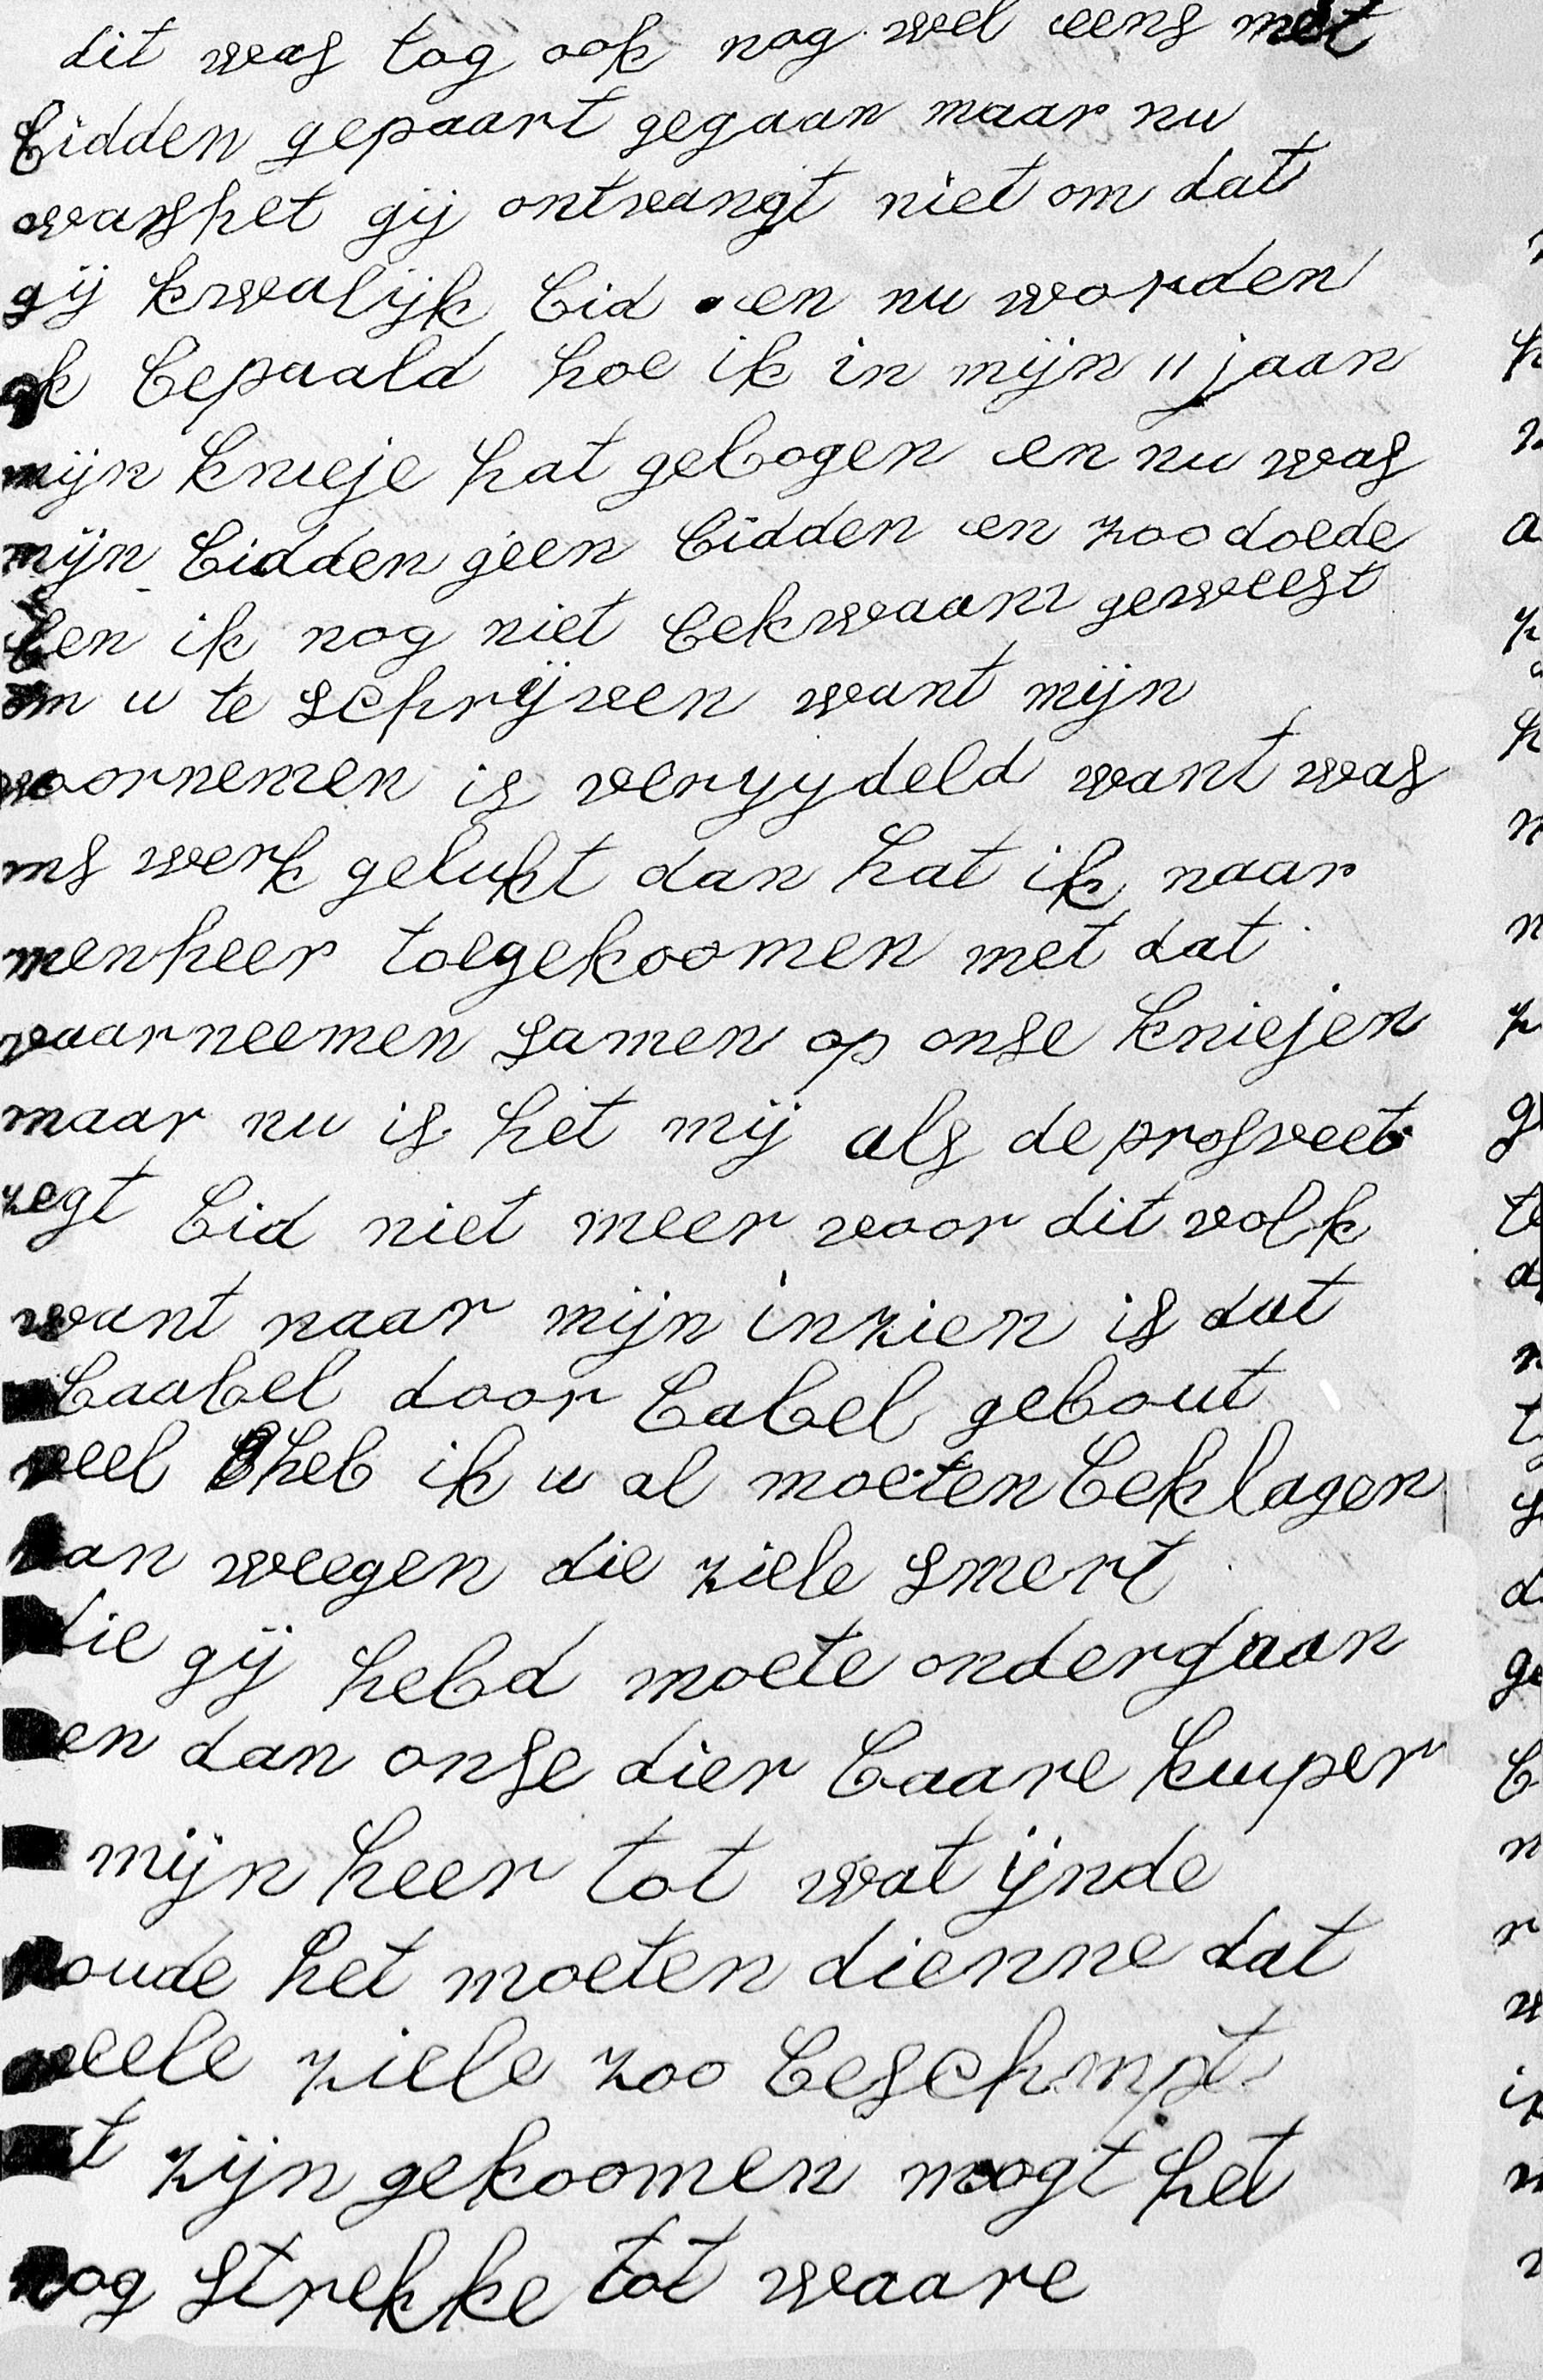 dit was tog ook nog wel eens met
bidden gepaart gegaan maar nu
was het gij ontvangt niet om dat
gij kwalijk bid en nu worden
ik bepaald hoe ik in mijn 11 jaar
mijn knieje hat gebogen en nu was
mijn bidden geen bidden en zoo doede
ben ik nog niet bekwaam geweest
om u te schrijven want mijn
voornemen is veryydeld want was
ons werk gelukt dan hat ik naar
menheer toegekoomen met dat
vaarneemen samen op onse kniejen
maar nu is het mij als de profveet
zegt bid niet meer voor dit volk
want naar mijn inzien is dat
baabel door babel gebout
veel heb ik u al moeten beklagen
van weegen die ziele smert
die gij hebd moete ondergaan
en dan onse dier baare kuiper
mijn heer tot wat ijnde
zoude het moeten dienne dat
veele ziele zoo beschmpt
zijn gekoomen mogt het
nog strekke tot waare